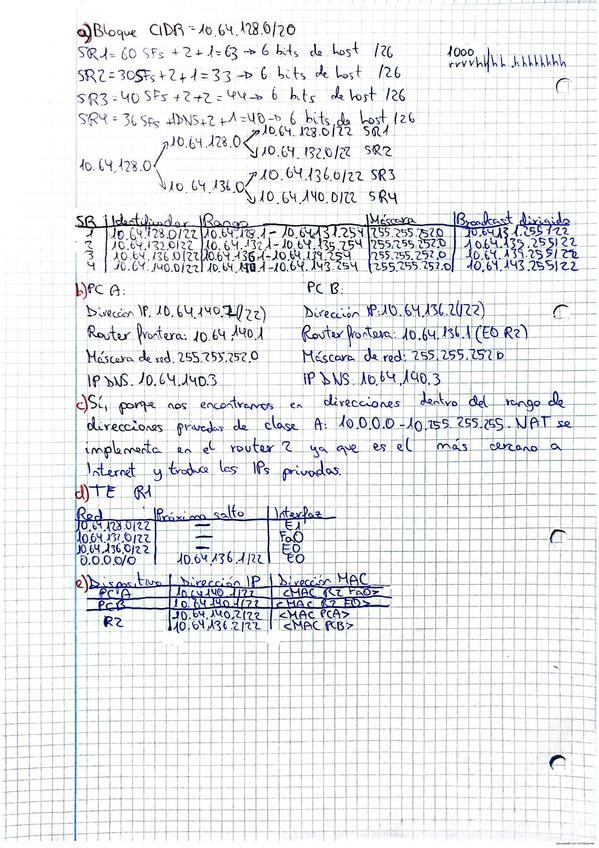 a) Bloque CIDR = 10.64.128.0/20
SR1 = 60 SFs + 2 + 1 = 63 → 6 bits de host /26
1000
rrrrhh|hh.hhhhhhhh
SR2 = 30SFs + 2 + 1 = 33 → 6 bits de host /26
SR3 = 40 SFs + 2 + 2 = 44 → 6 bits de host /26
SR4 = 36 SFs + 1DNS + 2 + 1 = 40 → 6 bits de host /26
10.64.128.0
10.64.128.0
10.64.128.0/22 SR1
10.64.132.0/22 SR2
10.64.136.0
10.64.136.0/22 SR3
10.64.140.0/22 SR4
SR Identificador Rango Máscara Broadcast dirigido
1 10.64.128.0/22 10.64.128.1 - 10.64.131.254 255.255.252.0 10.64.131.255/22
2 10.64.132.0/22 10.64.132.1 - 10.64.135.254 255.255.252.0 10.64.135.255/22
3 10.64.136.0/22 10.64.136.1 - 10.64.139.254 255.255.252.0 10.64.139.255/22
4 10.64.140.0/22 10.64.140.1 - 10.64.143.254 255.255.252.0 10.64.143.255/22
b) PC A: PC B:
Dirección IP: 10.64.140.2(/22) Dirección IP: 10.64.136.2(/22)
Router frontera: 10.64.140.1 Router frontera: 10.64.136.1 (E0 R2)
Máscara de red: 255.255.252.0 Máscara de red: 255.255.252.0
IP DNS: 10.64.140.3 IP DNS: 10.64.140.3
c) Sí, porque nos encontramos en direcciones dentro del rango de
direcciones privadas de clase A: 10.0.0.0 - 10.255.255.255. NAT se
implementa en el router 2 ya que es el más cercano a
Internet y traduce las IPs privadas.
d) TE R1
Red Próximo salto Interfaz
10.64.128.0/22 — E1
10.64.132.0/22 — Fa0
10.64.136.0/22 — E0
0.0.0.0/0 10.64.136.1/22 E0
e) Dispositivo Dirección IP Dirección MAC
PC A 10.64.140.1/22 <MAC R2 Fa0>
PCB 10.64.140.1/22 <MAC R2 E0>
R2 10.64.140.2/22 <MAC PCA>
10.64.136.2/22 <MAC PCB>